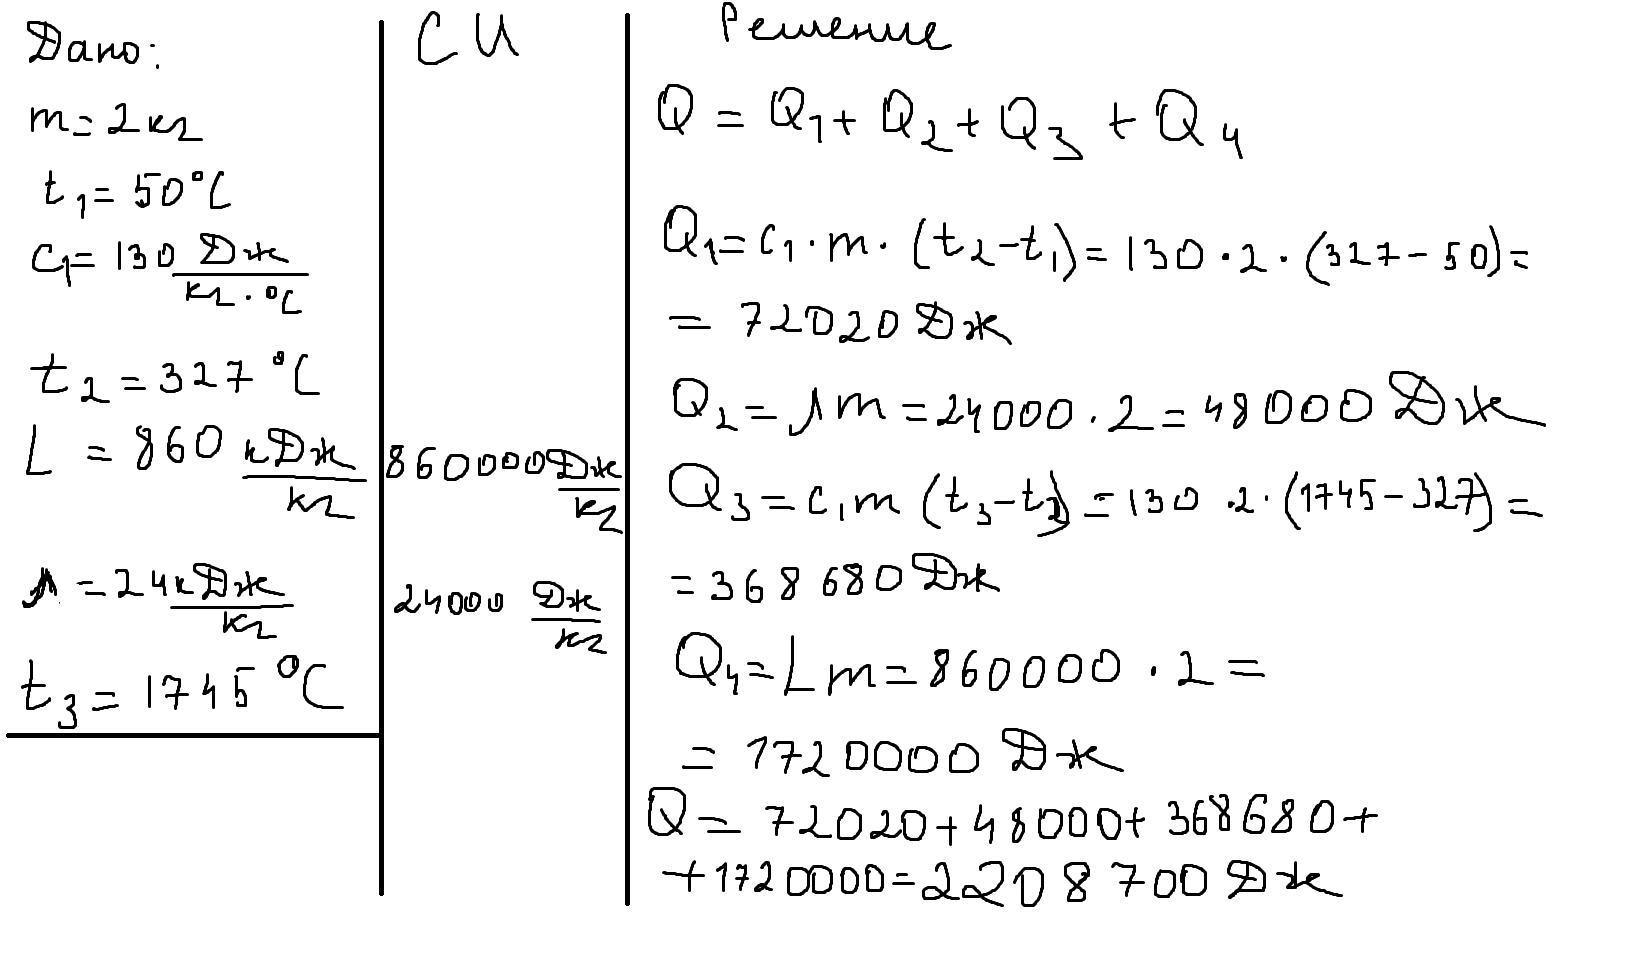 Дано:
m = 2 кг
t₁ = 50 °C
c₁ = 130 Дж/(кг · °C)
t₂ = 327 °C
L = 860 кДж/кг
λ = 24 кДж/кг
t₃ = 1745 °C
СИ
860000 Дж/кг
24000 Дж/кг
Решение
Q = Q₁ + Q₂ + Q₃ + Q₄
Q₁ = c₁ · m · (t₂ - t₁) = 130 · 2 · (327 - 50) =
= 72020 Дж
Q₂ = λm = 24000 · 2 = 48000 Дж
Q₃ = c₁m (t₃ - t₂) = 130 · 2 · (1745 - 327) =
= 368680 Дж
Q₄ = Lm = 860000 · 2 =
= 1720000 Дж
Q = 72020 + 48000 + 368680 +
+ 1720000 = 2208700 Дж